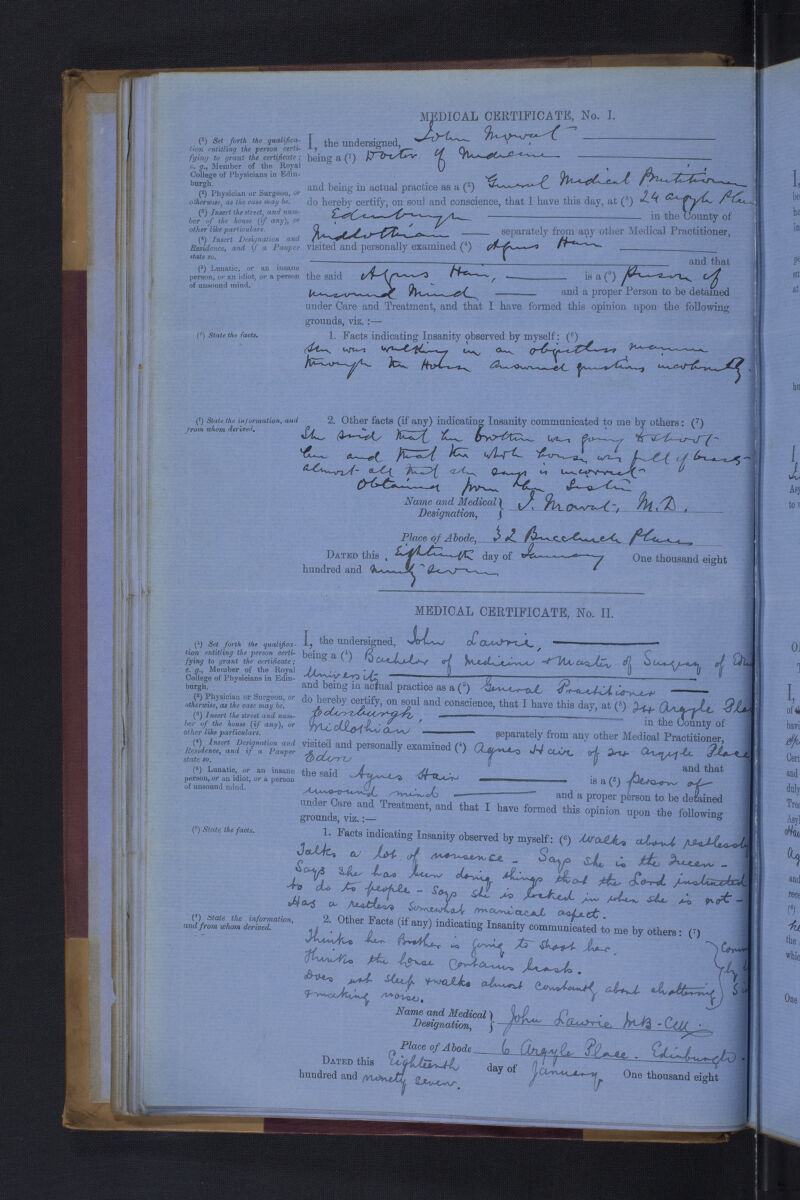 MEDICAL CERTIFICATE, No. I.
(¹) Set forth the qualifica-
tion entitling the person certi-
fying to grant the certificate;
e. g., Member of the Royal
College of Physicians in Edin-
burgh.
(²) Physician or Surgeon, or
otherwise, as the case may be.
(³) Insert the street, and num-
ber of the house (if any), or
other like particulars.
(⁴) Insert Designation and
Residence, and if a Pauper
state so.
(⁵) Lunatic, or an insane
person, or an idiot, or a person
of unsound mind.
I, the undersigned, John Mowat
being a (¹) Doctor of Medicine
and being in actual practice as a (²) General Medical Practitioner
do hereby certify, on soul and conscience, that I have this day, at (³) 24 Argyle Plac
Edinburgh in the County of
Midlothian separately from any other Medical Practitioner,
visited and personally examined (⁴) Agnes Hair
and that
the said Agnes Hair, is a (⁵) person of
unsound mind and a proper Person to be detained
under Care and Treatment, and that I have formed this opinion upon the following
grounds, viz.:—
(⁶) State the facts.
1. Facts indicating Insanity observed by myself: (⁶)
She was walking in an objectless manner
through the House answered questions incoherently.
(⁷) State the information, and
from whom derived.
2. Other facts (if any) indicating Insanity communicated to me by others: (⁷)
She said that her brother was going to shoot
her and that the whole house was full of beasts
almost all that she says is incorrect
Obtained from her Sister
Name and Medical Designation, J. Mowat, M.D.
Place of Abode, 32 Buccleuch Place
DATED this Eighteenth day of January One thousand eight
hundred and ninety seven
MEDICAL CERTIFICATE, No. II.
(¹) Set forth the qualifica-
tion entitling the person certi-
fying to grant the certificate;
e. g., Member of the Royal
College of Physicians in Edin-
burgh.
(²) Physician or Surgeon, or
otherwise, as the case may be.
(³) Insert the street and num-
ber of the house (if any), or
other like particulars.
(⁴) Insert Designation and
Residence, and if a Pauper
state so.
(⁵) Lunatic, or an insane
person, or an idiot, or a person
of unsound mind.
I, the undersigned, John Lawrie,
being a (¹) Bachelor of medicine & Master of Surgery of Edin
University
and being in actual practice as a (²) General Practitioner
do hereby certify, on soul and conscience, that I have this day, at (³) 24 Argyle Pla
Edinburgh, in the County of
Midlothian separately from any other Medical Practitioner,
visited and personally examined (⁴) Agnes Hair of 24 Argyle Place
Edin and that
the said Agnes Hair is a (⁵) person of
unsound mind and a proper person to be detained
under Care and Treatment, and that I have formed this opinion upon the following
grounds, viz.:—
(⁶) State the facts.
1. Facts indicating Insanity observed by myself: (⁶) Walks about restlessly
Talks a lot of nonsense - Says she is the Queen -
Says she has been doing things that the Lord instructed
to do to people - says she is locked in when she is not -
Has a restless somewhat maniacal aspect.
(⁷) State the information,
and from whom derived.
2. Other Facts (if any) indicating Insanity communicated to me by others: (⁷)
Thinks her Brother is going to shoot her.
Thinks the house contains beasts.
Does not sleep & walks almost constantly about chattering
& making noise.
Name and Medical Designation, John Lawrie MB. CM
Place of Abode 6 Argyle Place. Edinburgh.
DATED this Eighteenth day of January One thousand eight
hundred and ninety seven.